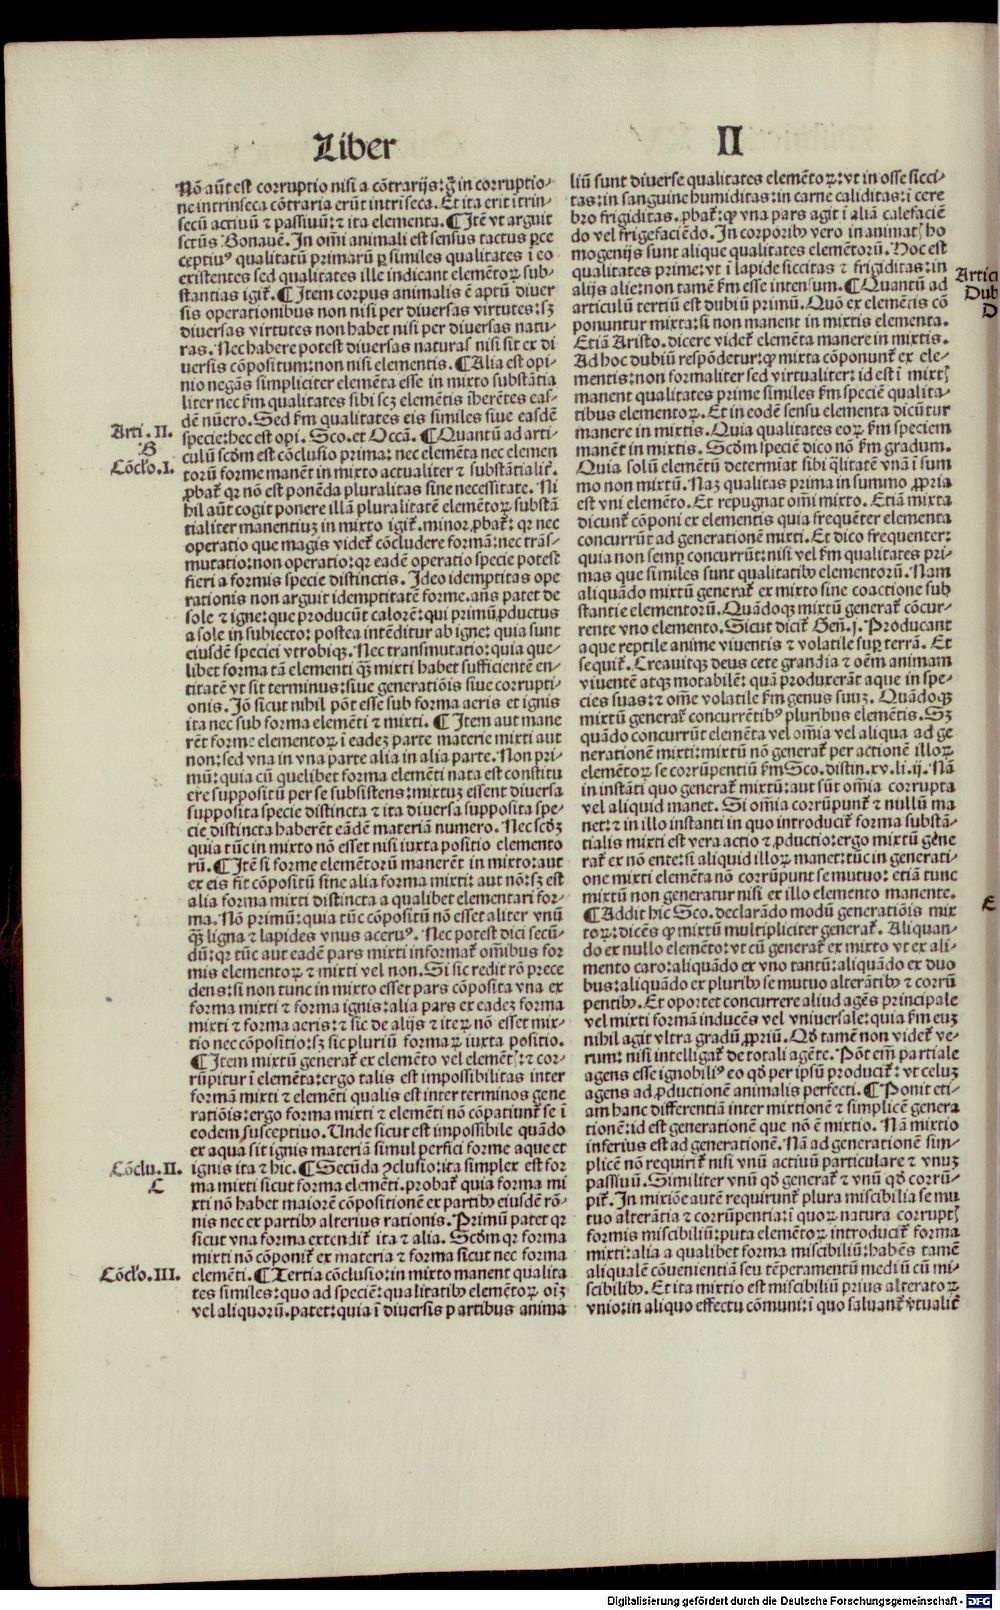 Liber
II
Nō aūt est corruptio nisi a cōtrarijs: g̃ in corruptio-
ne intrinseca cōtraria erūt intrīseca. Et ita erit ītrin-
secū actiuū ⁊ passiuū: ⁊ ita elementa. ¶ Itē vt arguit
sctūs Bonauē. In om̄i animali est sensus tactus ꝑce
ceptiuꝰ qualitatū primarū ꝑ similes qualitates ī eo
existentes sed qualitates ille indicant elemētoꝝ sub-
stantias igit̃. ¶ Item corpus animalis ē aptū diuer
sis operationibus non nisi per diuersas virtutes: sꝫ
diuersas virtutes non habet nisi per diuersas natu-
ras. Nec habere potest diuersas naturas nisi sit ex di
uersis cōpositum: non nisi elementis. ¶ Alia est opi-
nio negās simpliciter elemēta esse in mixto substātia
liter nec ẜm qualitates sibi scꝫ elemētis īherētes eas-
dē nūero. Sed ẜm qualitates eis similes siue easdē
specie: hec est opi. Sco. et Occā. ¶ Quantū ad arti-
culū scd̄m est cōclusio prima: nec elemēta nec elemen
torū forme manēt in mixto actualiter ⁊ substātialit̃.
ꝓbat̃ qꝛ nō est ponēda pluralitas sine necessitate. Ni
hil aūt cogit ponere illā pluralitatē elemētoꝝ substā
tialiter manentiuꝫ in mixto igit̃. minor ꝓbat̃: qꝛ nec
operatio que magis videt̃ cōcludere formā: nec trās-
mutatio: non operatio: qꝛ eadē operatio specie potest
fieri a formis specie distinctis. Ideo idemptitas ope
rationis non arguit idemptitatē forme. añs patet de
sole ⁊ igne: que producūt calorē: qui primū ꝓductus
a sole in subiecto: postea intēditur ab igne: quia sunt
eiusdē speciei vtrobiqꝫ. Nec transmutatio: quia que-
libet forma tā elementi qꝫ̄ mixti habet sufficientē en-
titatē vt sit terminus: siue generatiōis siue corrupti-
onis. Iō sicut nihil pōt esse sub forma aeris et ignis
ita nec sub forma elemēti ⁊ mixti. ¶ Item aut mane
rēt forme elementoꝝ ī eadeꝫ parte materie mixti aut
non: sed vna in vna parte alia in alia parte. Non pri-
mū: quia cū quelibet forma elemēti nata est constitu
ere suppositū per se subsistens: mixtuꝫ essent diuersa
supposita specie distincta ⁊ ita diuersa supposita spe-
cie distincta haberēt eādē materiā numero. Nec scd̄ꝫ
quia tūc in mixto nō esset nisi iuxta positio elemento
rū. ¶ Itē si forme elemētorū manerēt in mixto: aut
ex eis fit cōpositū sine alia forma mixti: aut nō: sꝫ est
alia forma mixti distincta a qualibet elementari for-
ma. Nō primū: quia tūc cōpositū nō esset aliter vnū
qꝫ̄ ligna ⁊ lapides vnus aceruꝰ. Nec potest dici secū-
dū: qꝛ tūc aut eadē pars mixti informat̃ om̄ibus for
mis elementoꝝ ⁊ mixti vel non. Si sic redit rō prece
dens: si non tunc in mixto esset pars cōposita vna ex
forma mixti ⁊ forma ignis: alia pars ex eadeꝫ forma
mixti ⁊ forma aeris: ⁊ sic de alijs ⁊ iteꝝ nō esset mix-
tio nec cōpositio: sꝫ sic pluriū formaꝝ iuxta positio.
¶ Item mixtū generat̃ ex elemēto vel elemētꝭ: ⁊ cor-
rūpitur ī elemēta: ergo talis est impossibilitas inter
formā mixti ⁊ elemēti qualis est inter terminos gene
ratiōis: ergo forma mixti ⁊ elemēti nō cōpatiunt̃ se ī
eodem susceptiuo. Unde sicut est impossibile quādo
ex aqua fit ignis materiā simul perfici forme aque et
ignis ita ⁊ hic. ¶ Secūda ꝯclusio: ita simplex est for
ma mixti sicut forma elemēti. probat̃ quia forma mi
xti nō habet maiorē cōpositionē ex partibꝰ eiusdē rō-
nis nec ex partibꝰ alterius rationis. Primū patet qꝛ
sicut vna forma extendit̃ ita ⁊ alia. Scd̄m qꝛ forma
mixti nō cōponit̃ ex materia ⁊ forma sicut nec forma
elemēti. ¶ Tertia cōclusio: in mixto manent qualita
tes similes: quo ad speciē: qualitatibꝰ elemētoꝝ oīꝫ
vel aliquorū. patet: quia ī diuersis partibus anima
Arti. II.
B
Cōclo. I.
Cōclu. II.
C
Cōclo. III.
liū sunt diuerse qualitates elemētoꝝ: vt in osse sicci-
tas: in sanguine humiditas: in carne caliditas: ī cere
bro frigiditas. ꝓbat̃: qꝫ vna pars agit ī aliā calefaciē
do vel frigefaciēdo. In corporibꝰ vero inanimatꝭ ho
mogenijs sunt alique qualitates elemētorū. Hoc est
qualitates prime: vt ī lapide siccitas ⁊ frigiditas: in
alijs alie: non tamē ẜm esse intensum. ¶ Quantū ad
articulū tertiū est dubiū primū. Quō ex elemētis cō
ponuntur mixta: si non manent in mixtis elementa.
Etiā Aristo. dicere videt̃ elemēta manere in mixtis.
Ad hoc dubiū respōdetur: qꝫ mixta cōponunt̃ ex ele-
mentis: non formaliter sed virtualiter: id est ī mixtꝭ
manent qualitates prime similes ẜm speciē qualita-
tibus elementoꝝ. Et in eodē sensu elementa dicūtur
manere in mixtis. Quia qualitates eoꝝ ẜm speciem
manēt in mixtis. Scd̄m speciē dico nō ẜm gradum.
Quia solū elemētū determīat sibi q̄litatē vnā ī sum
mo non mixtū. Naꝫ qualitas prima in summo ꝓpria
est vni elemēto. Et repugnat om̄i mixto. Etiā mixta
dicunt̃ cōponi ex elementis quia frequēter elementa
concurrūt ad generationē mixti. Et dico frequenter:
quia non semꝑ concurrūt: nisi vel ẜm qualitates pri-
mas que similes sunt qualitatibꝰ elementorū. Nam
aliquādo mixtū generat̃ ex mixto sine coactione sub
stantie elementorū. Quādoqꝫ mixtū generat̃ cōcur-
rente vno elemento. Sicut dicit̃ Geñ. j. Producant
aque reptile anime viuentis ⁊ volatile suꝑ terrā. Et
sequit̃. Creauitqꝫ deus cete grandia ⁊ oēm animam
viuentē atqꝫ motabilē: quā produxerāt aque in spe-
cies suas: ⁊ om̄e volatile ẜm genus suuꝫ. Quādoqꝫ
mixtū generat̃ concurrētibꝰ pluribus elemētis. Sꝫ
quādo concurrūt elemēta vel om̄ia vel aliqua ad ge
nerationē mixti: mixtū nō generat̃ per actionē illoꝝ
elemētoꝝ se corrūpentiū ẜm Sco. distin. xv. li. ij. Nā
in instāti quo generat̃ mixtū: aut sūt om̄ia corrupta
vel aliquid manet. Si om̄ia corrūpunt̃ ⁊ nullū ma
net: ⁊ in illo instanti in quo introducit̃ forma substā-
tialis mixti est vera actio ⁊ ꝓductio: ergo mixtū gene
rat̃ ex nō ente: si aliquid illoꝝ manet: tūc in generati-
one mixti elemēta nō corrūpunt se mutuo: etiā tunc
mixtū non generatur nisi ex illo elemento manente.
¶ Addit hic Sco. declarādo modū generatiōis mix
toꝝ: dicēs qꝫ mixtū multipliciter generat̃. Aliquan-
do ex nullo elemēto: vt cū generat̃ ex mixto vt ex ali-
mento caro: aliquādo ex vno tantū: aliquādo ex duo
bus: aliquādo ex pluribꝰ se mutuo alterātibꝰ ⁊ corrū
pentibꝰ. Et oportet concurrere aliud agēs principale
vel mixti formā inducēs vel vniuersale: quia ẜm euꝫ
nihil agit vltra gradū ꝓpriū. Qd̄ tamē non videt̃ ve-
rum: nisi intelligat̃ de totali agēte. Pōt em̄ partiale
agens esse ignobiliꝰ eo qd̄ per ipsū producit̃: vt celuꝫ
agens ad ꝓductionē animalis perfecti. ¶ Ponit eti-
am hanc differentiā inter mixtionē ⁊ simplicē genera
tionē: id est generationē que nō ē mixtio. Nā mixtio
inferius est ad generationē. Nā ad generationē sim-
plicē non requirit̃ nisi vnū actiuū particulare ⁊ vnuꝫ
passiuū. Similiter vnū qd̄ generat̃ ⁊ vnū qd̄ corrū-
pit̃. In mixiōe autē requirunt̃ plura miscibilia se mu
tuo alterātia ⁊ corrūpentia: ī quoꝝ natura corruptꝭ
formis miscibiliū: puta elemētoꝝ introducit̃ forma
mixti: alia a qualibet forma miscibiliū: habēs tamē
aliqualē cōuenientiā seu tēperamentū mediū cū mi-
scibilibꝰ. Et ita mixtio est miscibiliū prius alteratoꝝ
vnio: in aliquo effectu cōmuni: ī quo saluant̃ v̄tualit̃
Artic
Dub
D
E
Digitalisierung gefördert durch die Deutsche Forschungsgemeinschaft - DFG